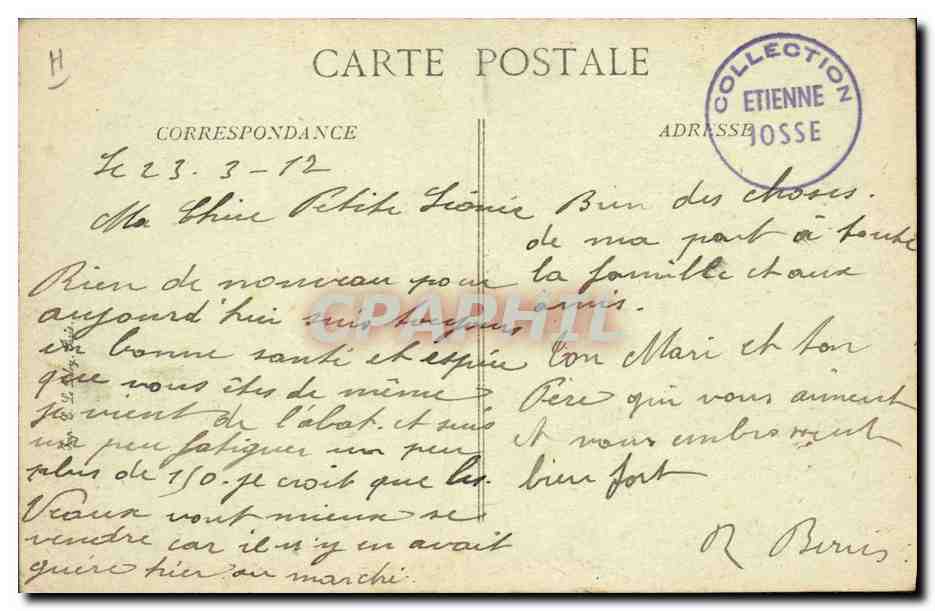 H
CARTE POSTALE
COLLECTION
ETIENNE
JOSSE
CORRESPONDANCE
ADRESSE
Le 23. 3 - 12
Ma Chère Petite Léonie
Rien de nouveau pour
aujourd'hui suis toujours
en bonne santé et espère
que vous êtes de même
je vient de l'abat. et suis
un peu fatiguer un peu
plus de 150. je croit que les
Veaux vont mieux se
vendre car il n'y en avait
guère hier au marché.
Bien des choses.
de ma part à toute
la famille et aux
amis.
Ton Mari et ton
Père qui vous aiment
et vous embrassent
bien fort
R
CPAPHIL